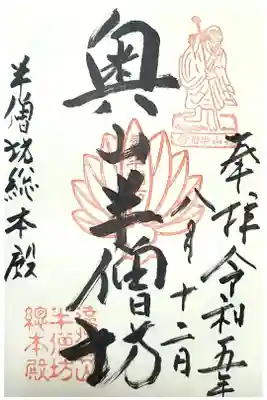 奉拝 令和五年
八月十二日
奥山半僧坊
半僧坊総本殿
半僧坊
総本殿